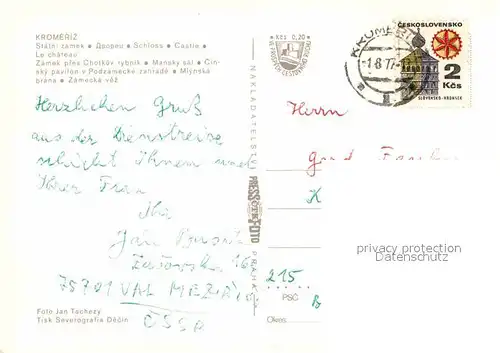 KROMĚŘÍŽ
Státní zámek • Дворец • Schloss • Castle •
Le château
Zámek přes Chotkův rybník • Manský sál • Čín-
ský pavilon v Podzámecké zahradě • Mlýnská
brána • Zámecká věž
Herzlichen Gruß
aus der Dienstreise
schickt Ihnen und
Ihrer Frau
Ihr
Jan
Zašovská 16
75701 VAL. MEZIŘÍČÍ
ČSSR
Foto Jan Tachezy
Tisk Severografia Děčín
NAKLADATELSTVÍ
PRESSFOTO
PRAHA
Kčs 0,20
KROMĚŘÍŽ
-1.-8.77
ČESKOSLOVENSKO
2
Kčs
SLOVENSKO-HRONSEK
Herrn
215
PSČ
Okres:
privacy protection
Datenschutz